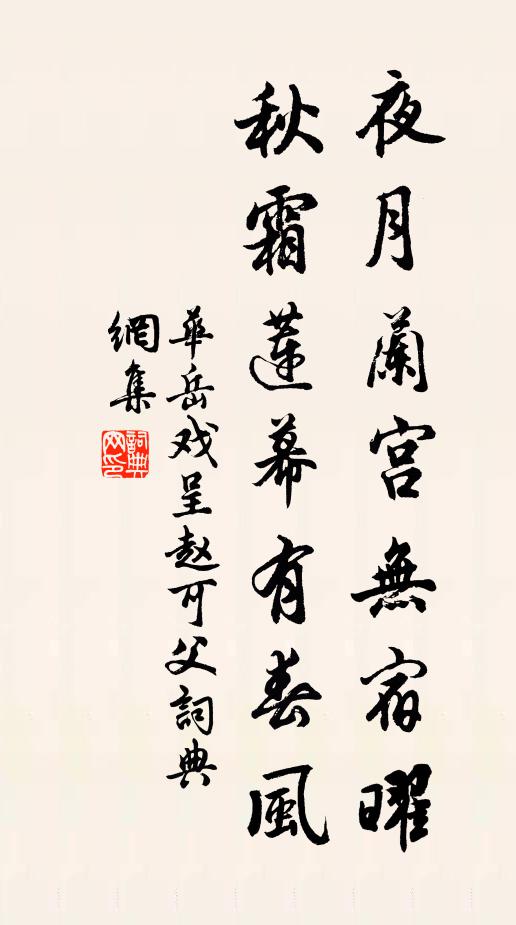 夜月蘭宫無宿曜
秋霜蓮幕有春風
華岳戏呈赵可父詞典
網集
詞典
网印